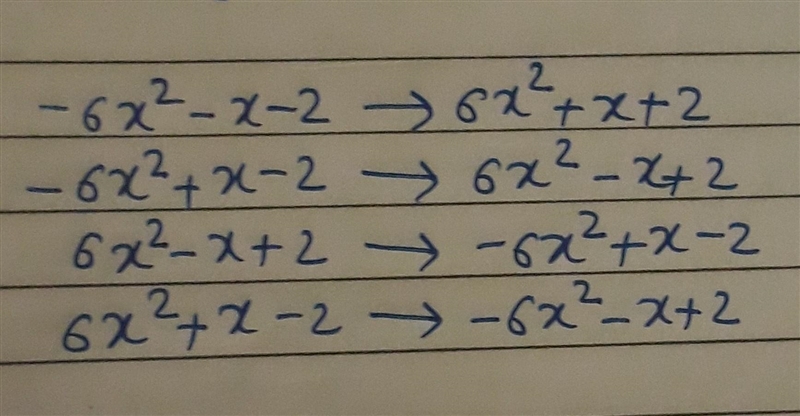 -6x²-x-2 → 6x²+x+2
-6x²+x-2 → 6x²-x+2
6x²-x+2 → -6x²+x-2
6x²+x-2 → -6x²-x+2